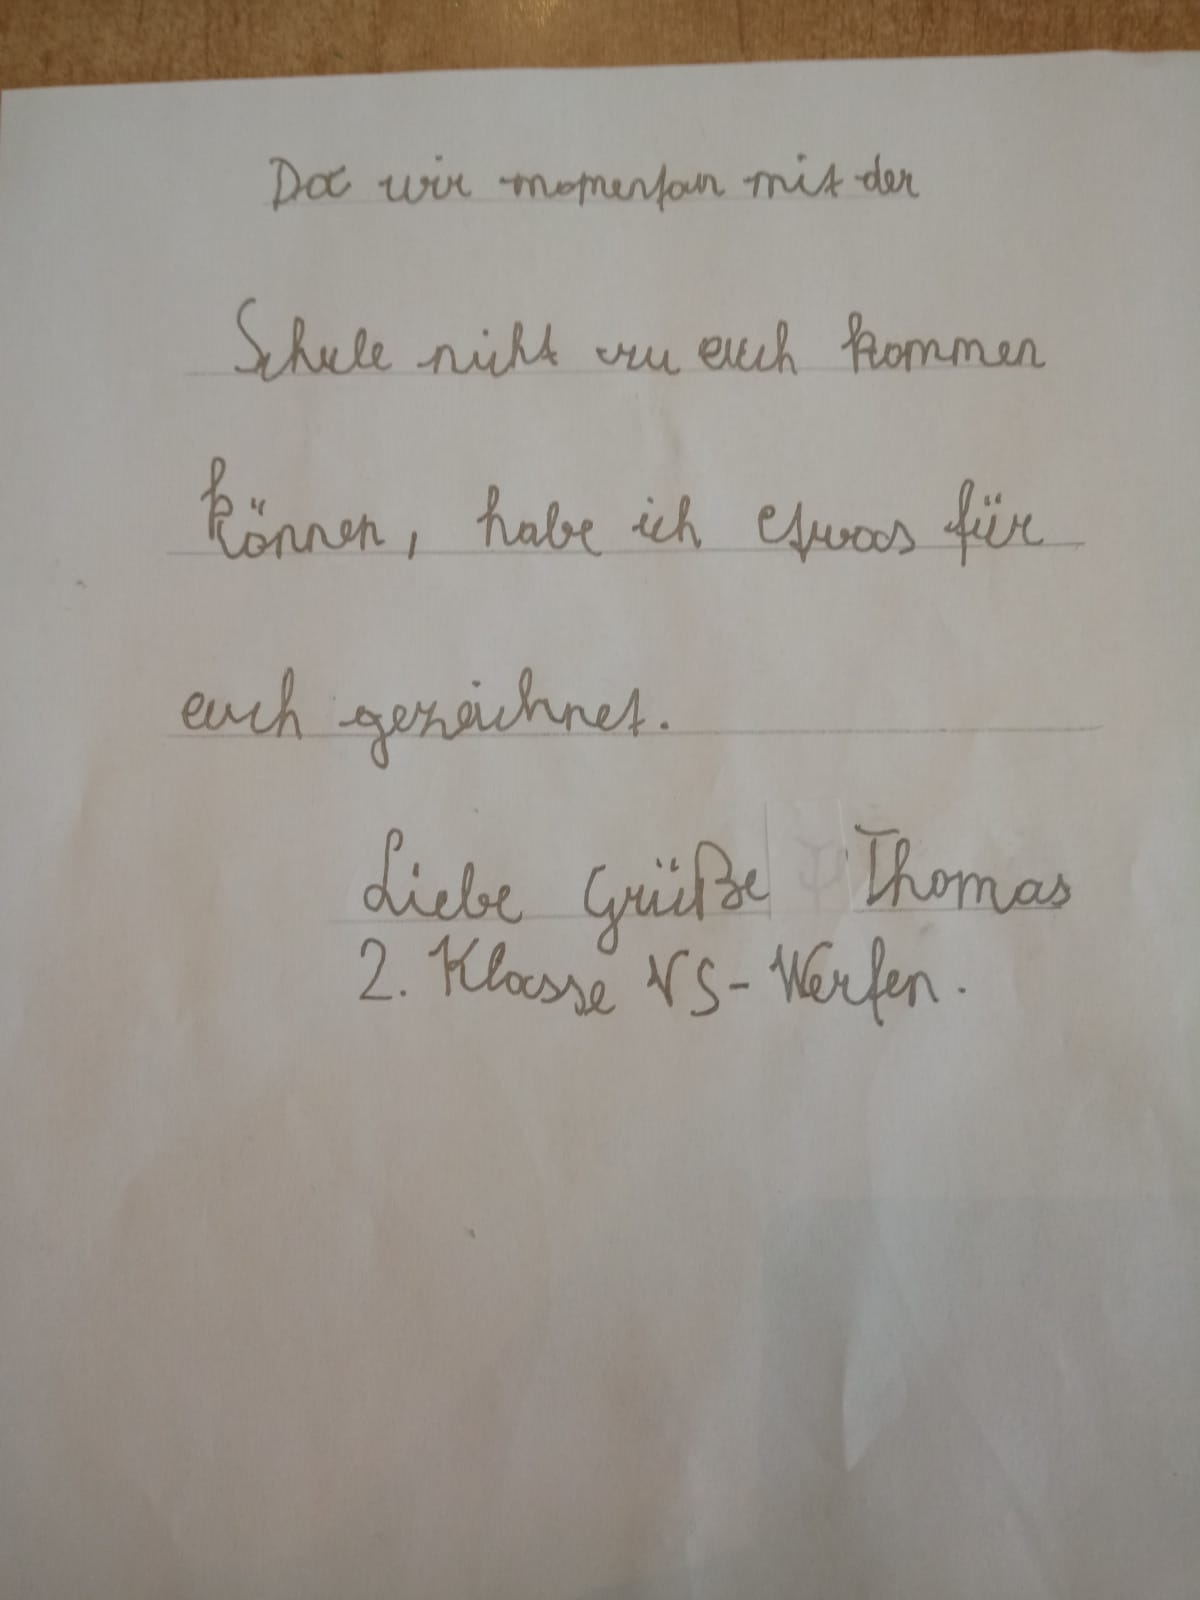 Da wir momentan mit der
Schule nicht zu euch kommen
können, habe ich etwas für
euch gezeichnet.
Liebe Grüße Thomas
2. Klasse VS-Werfen.